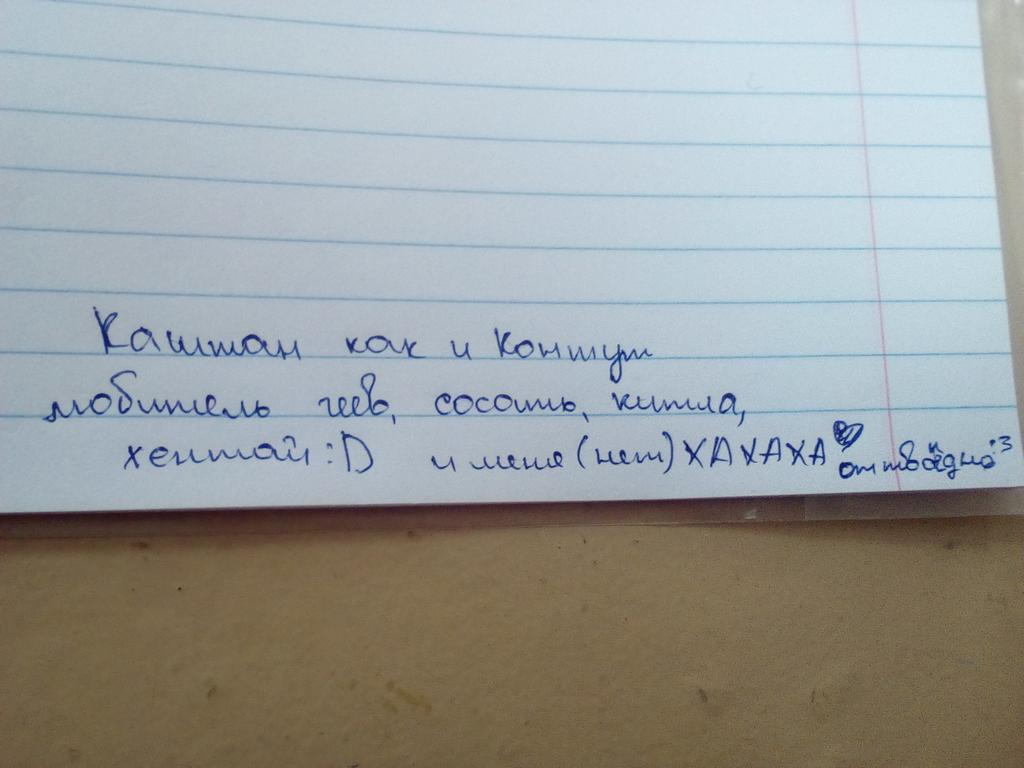 Каштан как и Контуп
любитель геев, сосать, китла,
хентай :D и меня (нет) ХАХАХА
от